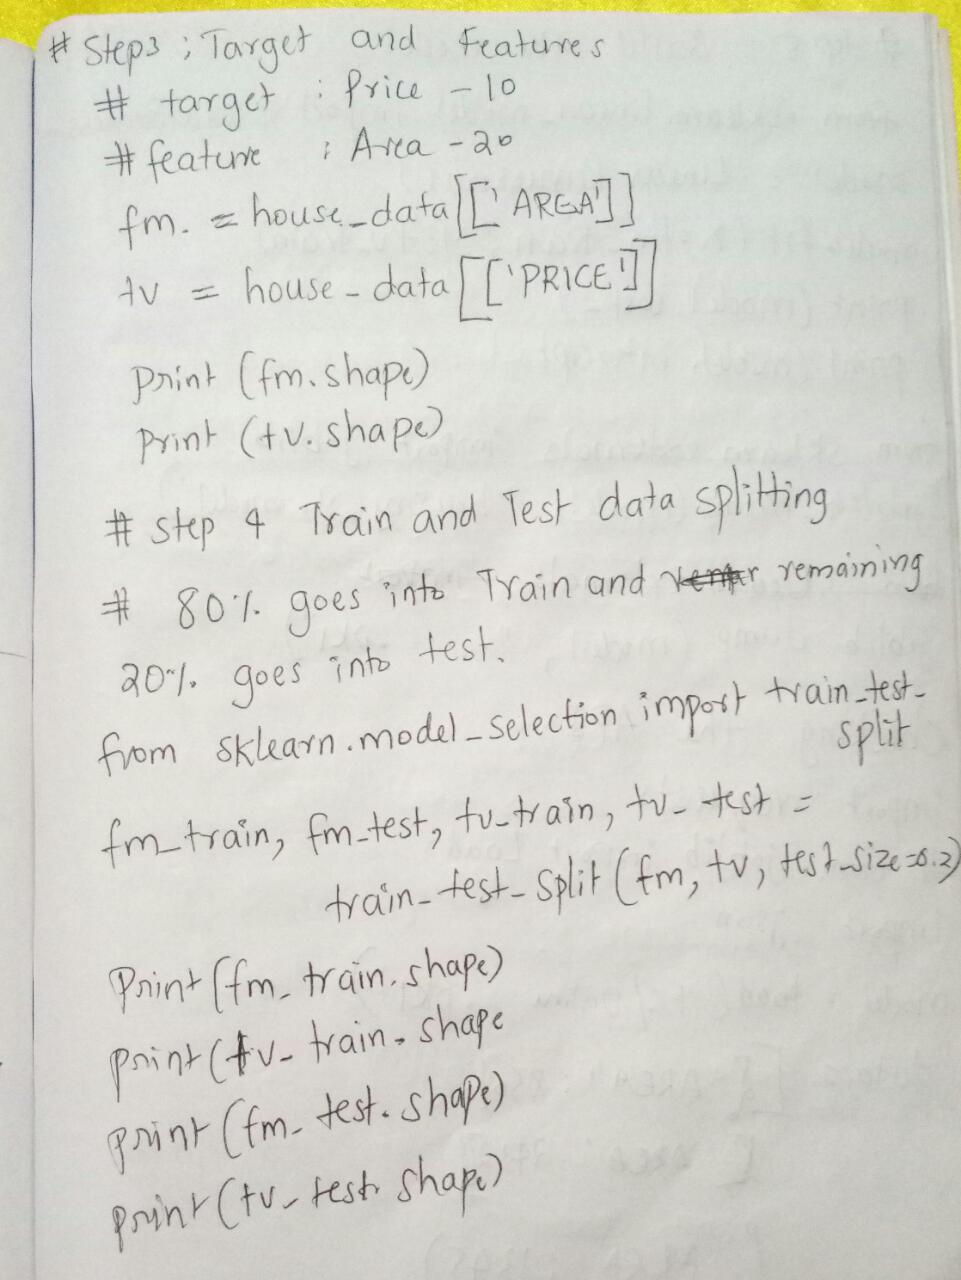 # Step3 ; Target and Features
# target : Price - 10
# feature : Area - 20
fm. = house_data[['AREA']]
tv = house_data[['PRICE']]
Print (fm.shape)
Print (tv.shape)
# step 4 Train and Test data splitting
# 80% goes into Train and remaining
20% goes into test.
from sklearn.model_selection import train_test_
split
fm_train, fm_test, tv_train, tv_test =
train_test_split (fm, tv, test_size=0.2)
Print (fm_train.shape)
print (tv_train.shape
print (fm_test.shape)
print (tv_test.shape)